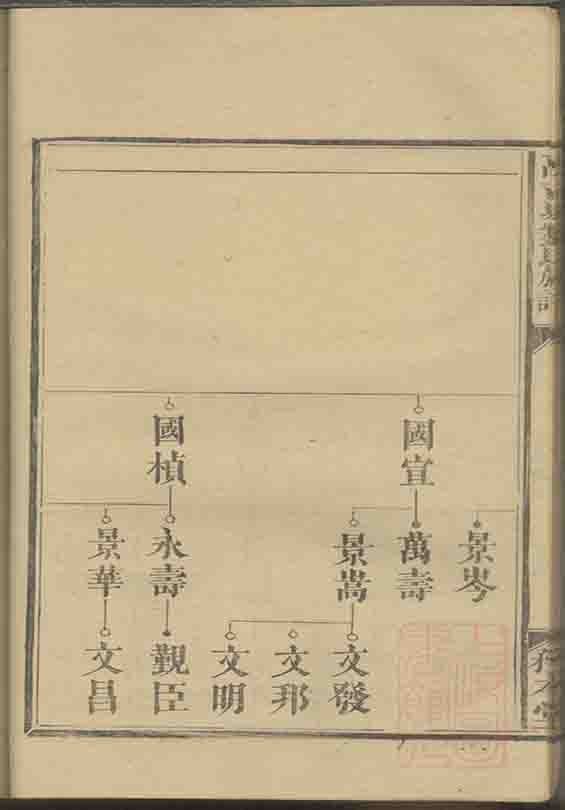 國宣
國楨
景岑
萬壽
景嵩
永壽
景華
文發
文邦
文明
覲臣
文昌